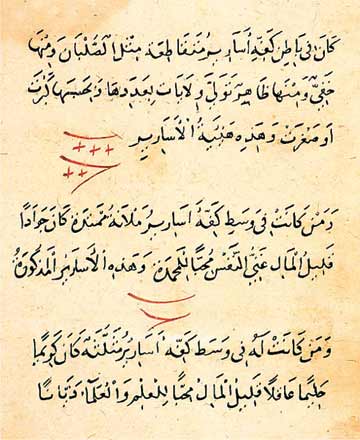 كان في باطن كفه أسارير متقاطعة مثل الصلبان ومنها
خفي ومنها ظاهر تولى ولايات بعددها وبحسبها كبرت
أو صغرت وهذه هيئة الأسارير
ومن كانت في وسط كفه أسارير ملآنة ممتدة كان جوادا
قليل المال غني النفس محبا للمحمدة وهذه الأسارير المذكورة
ومن كانت له في وسط كفه أسارير مثلثة كان كريما
حليما عاقلا قليل المال محبا للعلم والعلماء